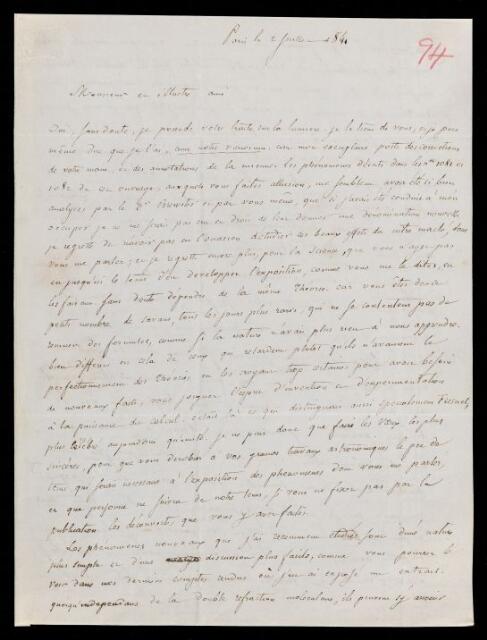 Paris le 2 1841
94
Monsieur et illustre ami
Oui, sans doute, je possède votre traité sur la lumière, je le tiens de vous, et je puis
même dire que je l'ai, cum notis variorum, car mon exemplaire porte des corrections
de votre main, et des annotations de la mienne. les phénomènes décrits dans les nos 1081 et
1082 de cet ouvrage, auxquels vous faites allusion, me semblent avoir été si bien
analysés par le Dr Brewster et par vous même, que si j'avais été conduit à m'en
occuper je ne me serais pas cru en droit de leur donner une dénomination nouvelle
je regrette de n'avoir pas eu l'occasion d'étudier ces beaux effets de dont
vous me parlez, et je regrette encore plus, pour la science, que vous n'ayez pas
eu jusqu'ici le tems d'en developper l'exposition, comme vous me le dites, en
les faisant sans doute dépendre de la même théorie. car vous êtes de ce
petit nombre de savans, tous les jours plus rares, qui ne se contentent pas de
remuer des formules, comme si la nature n'avait plus rien à nous apprendre.
bien différens en cela de ceux qui retardent plutôt qu'ils n'avancent le
perfectionnement des théories, en les croyant trop certaines pour avoir besoin
de nouveaux faits, vous joignez l'esprit d'invention et d'expérimentation
à la puissance du calcul. c'était là ce qui distinguait aussi spécialement Fresnel,
plus célèbre aujourd'hui qu'imité. je ne puis donc que faire les voeux les plus
sincères, pour que vous dérobiez à vos grands travaux astronomiques le peu de
tems qui serait nécessaire à l'exposition des phénomènes dont vous me parlez,
et que personne ne suivra de notre tems, si vous ne fixez pas par la
publication les découvertes que vous y avez faites.
Les phénomènes nouveaux que j'ai récemment étudiés sont d'une nature
plus simple et d'une discussion plus facile, comme vous pourrez le
voir dans nos derniers comptes rendus où j'en ai exposé un extrait.
quoiqu'indépendans de la double réfraction moléculaire, ils peuvent y avoir